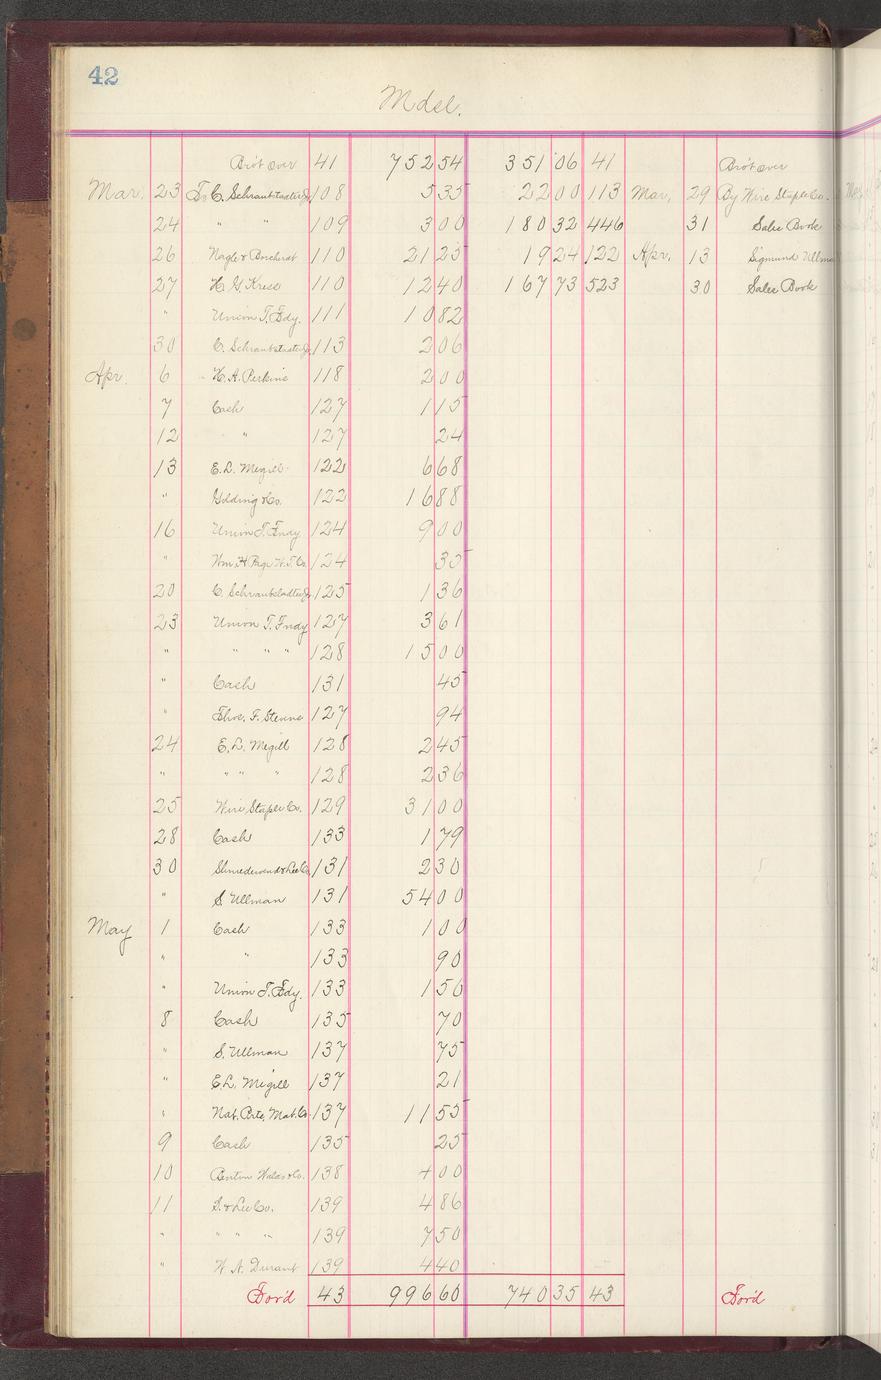 42
Mdse.
Bro't over 41 752 54 351 06 41 Bro't over
Mar. 23 To C. Schraubstadter Jr 108 5 35 22 00 113 Mar. 29 By Wire Staple Co.
24 " " 109 3 00 180 32 446 31 Sales Book
26 Nagle & Borcherst 110 21 25 19 24 122 Apr. 13 Sigmund Ullman
27 H. G. Kress 110 12 40 167 73 523 30 Sales Book
" Union T. Fdy. 111 10 82
30 C. Schraubstadter Jr 113 2 06
Apr. 6 H. A. Perkins 118 2 00
7 Cash 127 1 15
12 " 127 24
13 E. L. Megill 122 6 68
" Golding & Co. 122 16 88
16 Union T. Fndy 124 9 00
" Wm. H Page W. T. Co. 124 35
20 C. Schraubstadter Jr 125 1 36
23 Union T. Fndy 127 3 61
" " " " 128 15 00
" Cash 131 45
" Thos. F. Stevens 127 94
24 E. L. Megill 128 2 45
" " " " 128 2 36
25 Wire Staple Co. 129 31 00
28 Cash 133 1 79
30 & Lee Co. 131 2 30
" S. Ullman 131 54 00
May 1 Cash 133 1 00
" " 133 90
" Union T. Fdy. 133 1 50
8 Cash 135 70
" S. Ullman 137 75
" E. L. Megill 137 21
" Nat. Prtg. Mat. Co. 137 11 55
9 Cash 135 25
10 Benton Waldo & Co. 138 4 00
11 S. & Lee Co. 139 4 86
" " " " 139 7 50
" W. N. Durant 139 4 40
For'd 43 996 60 740 35 43 For'd